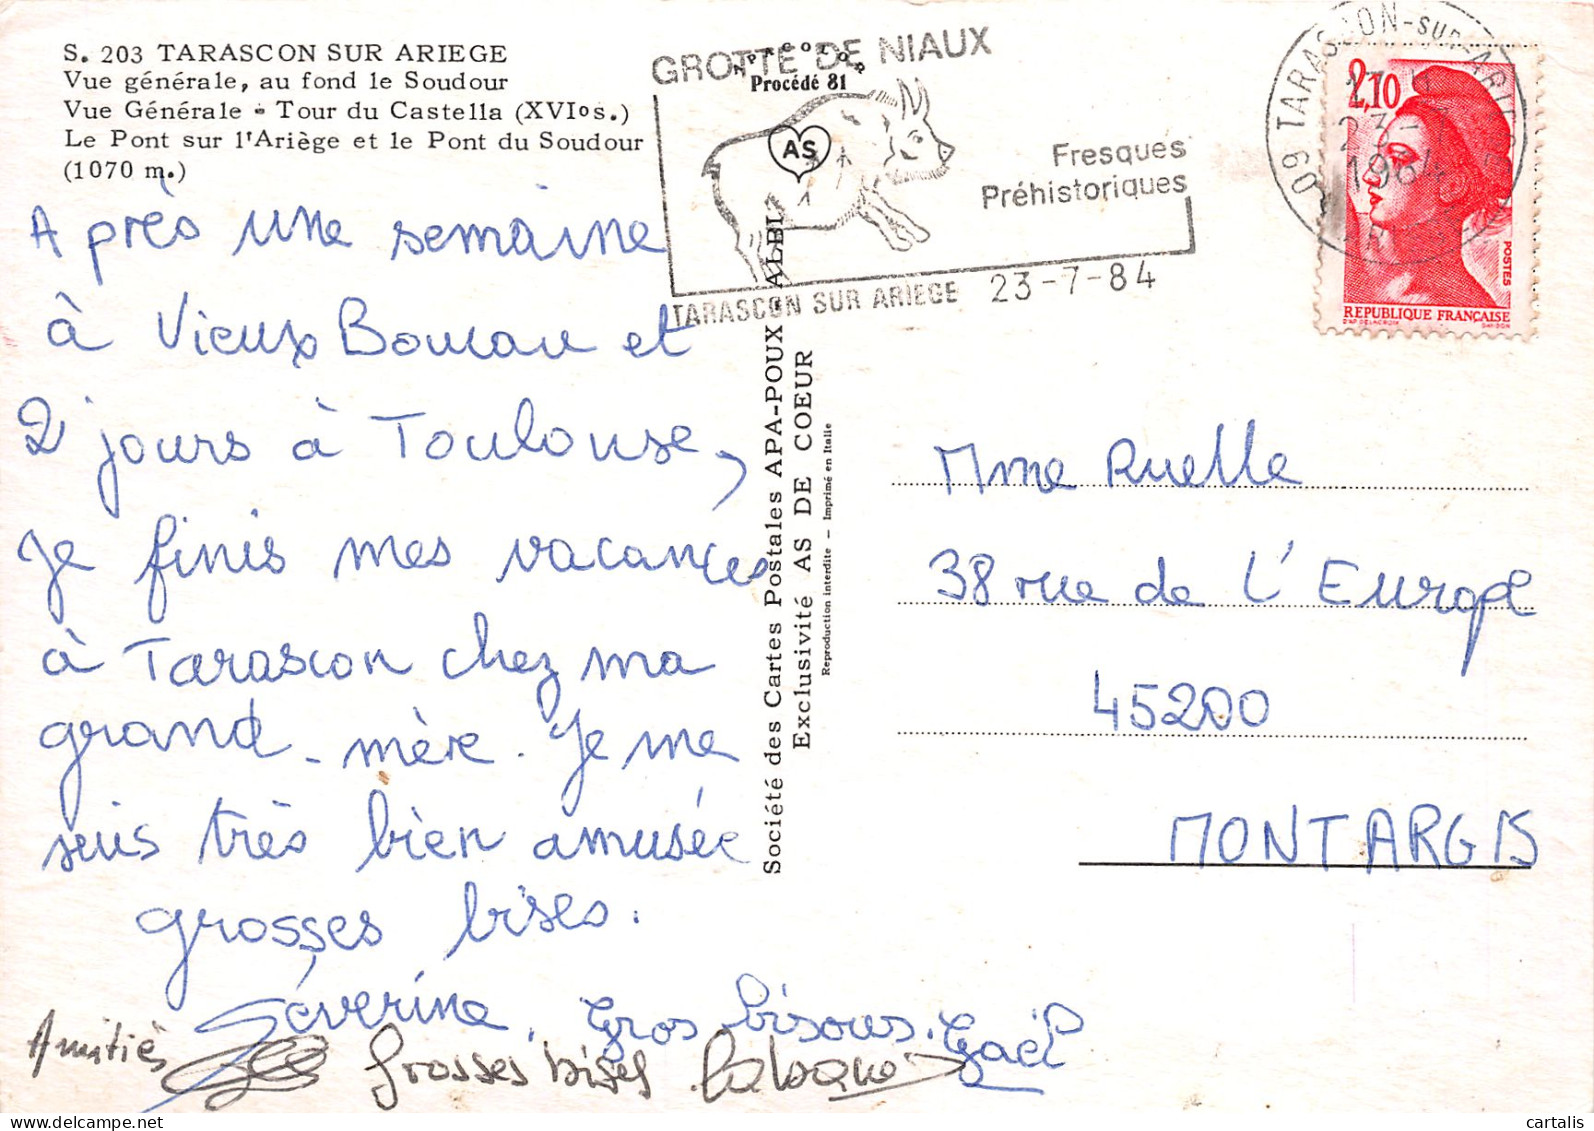 S. 203 TARASCON SUR ARIEGE
Vue générale, au fond le Soudour
Vue Générale - Tour du Castella (XVIos.)
Le Pont sur l'Ariège et le Pont du Soudour
(1070 m.)
A près une semaine
à Vieux Boucau et
2 jours à Toulouse,
je finis mes vacances
à Tarascon chez ma
grand-mère. Je me
suis très bien amusée
grosses bises.
Séverine, Gros bisous. Gaël
Amitiés
Grosses bises
GROTTE DE NIAUX
Procédé 81
AS
Fresques
Préhistoriques
TARASCON SUR ARIEGE 23-7-84
Société des Cartes Postales APA-POUX - ALBI
Exclusivité AS DE COEUR
Reproduction interdite - Imprimé en Italie
09 TARASCON-SUR-ARIEGE
23-7
1984
2,10
POSTES
REPUBLIQUE FRANÇAISE
D'AP. DELACROIX
Mme Ruelle
38 rue de L'Europe
45200
MONTARGIS
cartalis